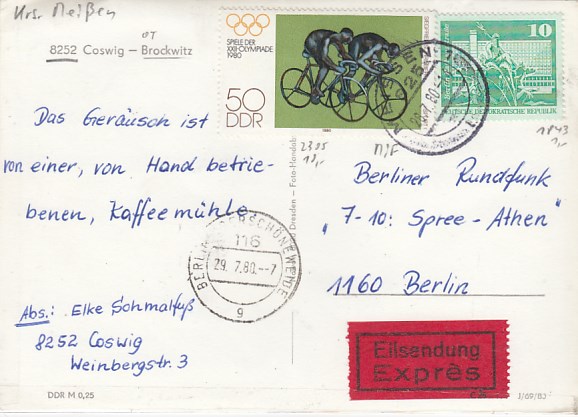 Krs. Meißen
OT
8252 Coswig – Brockwitz
SPIELE DER
XXII. OLYMPIADE
1980
50
DDR
1980
10
DEUTSCHE DEMOKRATISCHE REPUBLIK
MEISSEN
2305
10,-
n/F
1843
1,-
Das Geräusch ist
von einer, von Hand betrie-
benen, Kaffeemühle.
Berliner Rundfunk
"7-10: Spree-Athen"
1160 Berlin
BERLIN-OBERSCHÖNEWEIDE
116
29. 7.80.--7
g
Dresden – Foto-Handabzug
Abs.: Elke Schmalfuß
8252 Coswig
Weinbergstr. 3
Eilsendung
Exprès
DDR M 0,25